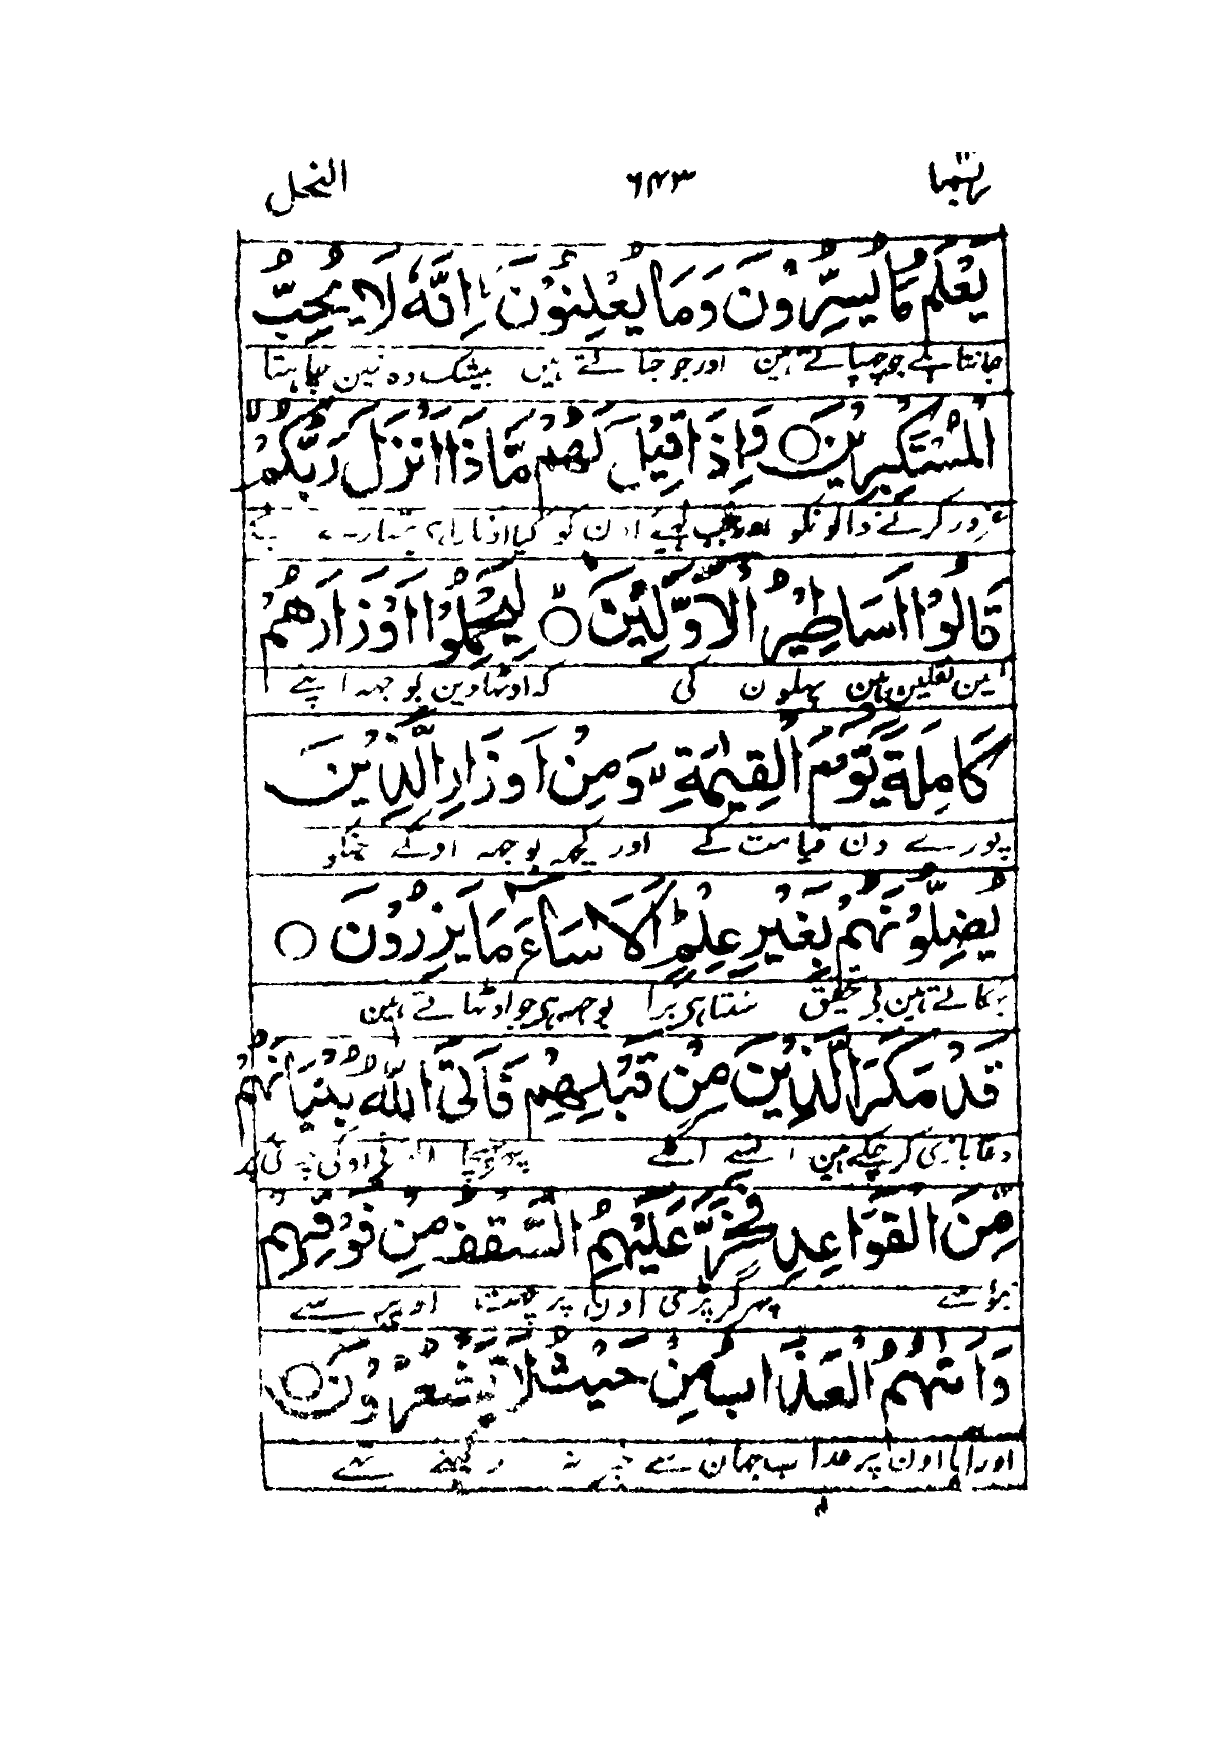 ربما ۶۴۳ النحل
يَعْلَمُ مَا يُسِرُّوْنَ وَمَا يُعْلِنُوْنَ ؕ اِنَّهٗ لَا يُحِبُّ
جانتا ہے جو چھپاتے ہین اور جو جتاتے ہیں بیشک وہ نہین چاہتا
الْمُسْتَكْبِرِيْنَ ○ وَاِذَا قِيْلَ لَهُمْ مَّاذَا اَنْزَلَ رَبُّكُمْ
غرور کرنے والونکو اور جب کہیے اون کو کیا اوتارا ہی تمہارے
قَالُوْا اَسَاطِيْرُ الْاَوَّلِيْنَ ○ لِيَحْمِلُوْا اَوْزَارَهُمْ
نقلین ہین پہلون کی کہ اوٹھاوین بوجہہ اپنے
كَامِلَةً يَّوْمَ الْقِيٰمَةِ ۙ وَمِنْ اَوْزَارِ الَّذِيْنَ
پورے دن قیامت کے اور کچہہ بوجہہ اونکے جنکو
يُضِلُّوْنَهُمْ بِغَيْرِ عِلْمٍ ؕ اَلَا سَآءَ مَا يَزِرُوْنَ ○
بہکاتے ہین بی تحقیق سنتا ہی برا بوجہہ ہی جو اوٹھاتے ہین
قَدْ مَكَرَ الَّذِيْنَ مِنْ قَبْلِهِمْ فَاَتَى اللّٰهُ بُنْيَانَهُمْ
دغابازی کر چکے ہین انسے اگلے پھر پہنچا اللہ اونکی
مِّنَ الْقَوَاعِدِ فَخَرَّ عَلَيْهِمُ السَّقْفُ مِنْ فَوْقِهِمْ
نیو سے پھر گر پڑی اون پر چھت اوپر سے
وَاَتٰىهُمُ الْعَذَابُ مِنْ حَيْثُ لَا يَشْعُرُوْنَ ○
اور آیا اون پر عذاب جہان سے خبر نہ رکھتے تھے